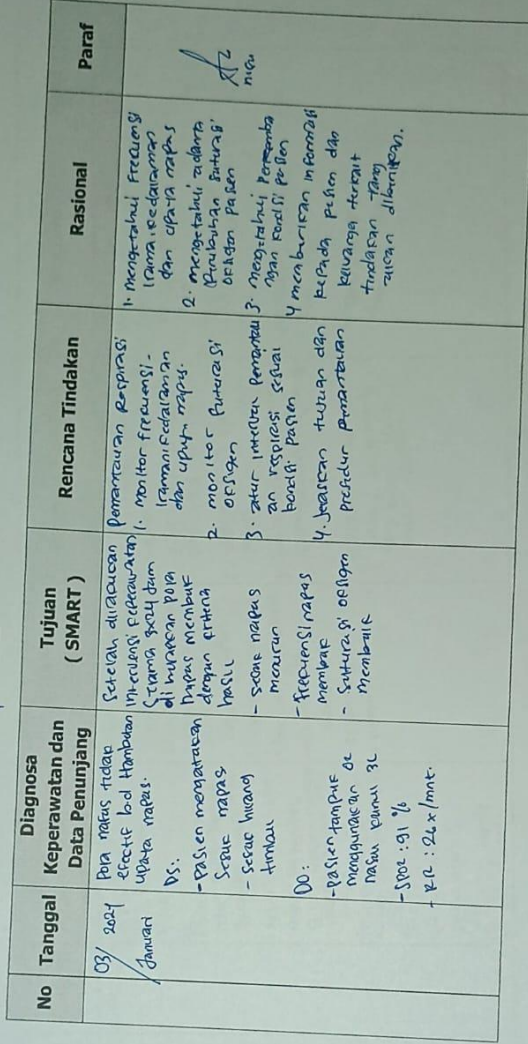 No
Tanggal
Diagnosa
Keperawatan dan
Data Penunjang
Tujuan
( SMART )
Rencana Tindakan
Rasional
Paraf
03/ 2024
Januari
Pola nafas tidak
efektif b.d Hambatan
upaya napas.
DS:
- Pasien mengatakan
sesak napas
- sesak hilang
timbul
DO:
- Pasien tampak
menggunakan O2
nasal kanul 3L
- SPO2 : 91 %
- RR : 26 x/mnt.
Setelah dilakukan
intervensi keperawatan
selama 3x24 jam
diharapkan pola
napas membaik
dengan kriteria
hasil
- sesak napas
menurun
- frekuensi napas
membaik
- Saturasi oksigen
membaik
Pemantauan Respirasi
1. monitor frekuensi,
irama, kedalaman
dan upaya napas.
2. monitor saturasi
oksigen
3. atur interval Pemantau
an respirasi sesuai
kondisi pasien
4. Jelaskan tujuan dan
prosedur pemantauan
1. mengetahui frekuensi
irama, kedalaman
dan upaya napas
2. mengetahui adanya
perubahan saturasi
oksigen pasien
3. mengetahui Perkemba
ngan kondisi pasien
4 memberikan informasi
kepada pasien dan
keluarga terkait
tindakan yang
akan diberikan.